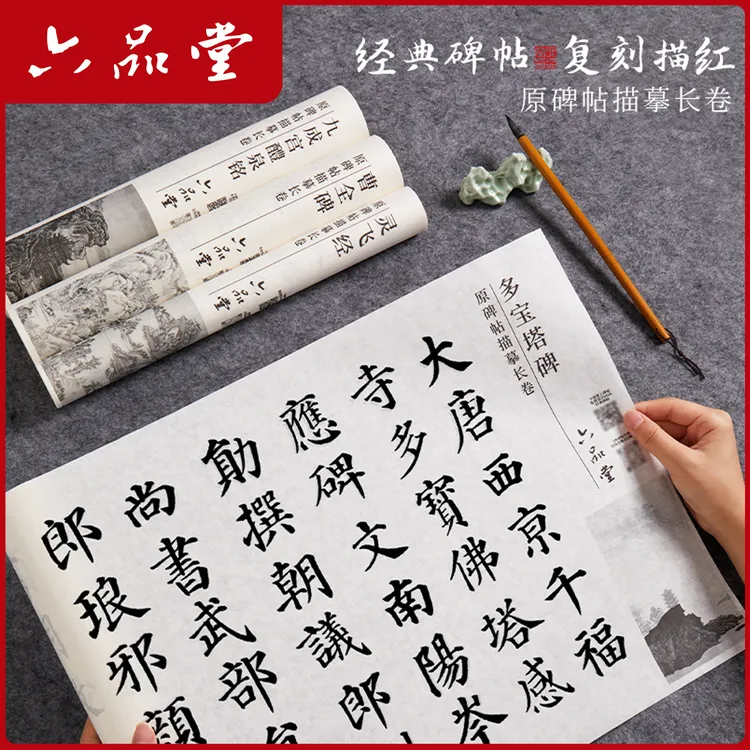 六品堂
经典碑帖 复刻描红
原碑帖描摹长卷
九成宫醴泉铭
原碑帖描摹长卷
六品堂
曹全碑
原碑帖描摹长卷
六品堂
灵飞经
原碑帖描摹长卷
六品堂
多宝塔碑
原碑帖描摹长卷
六品堂
大唐西京千福
寺多寶佛塔感
應碑文南陽岑
勛撰朝議郎
尚書武部
郎琅邪顏